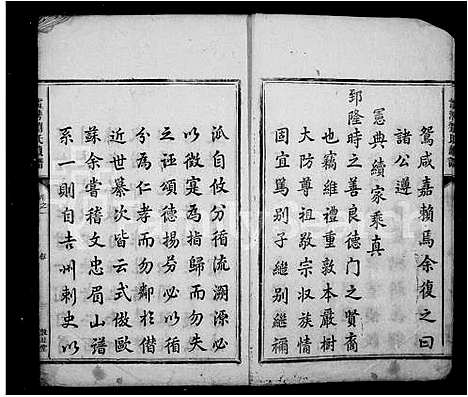 鴛咸嘉賴馬余復之曰
諸公遵
憲典續家乘真
郅隆時之善良德門之賢裔
也竊維禮重敦本嚴樹
大防尊祖敬宗收族
固宜篤別子繼別繼禰
派自攸分循流溯源必
以微寔為指歸而勿失
之誣頌德揚芬必以循
分為仁孝而勿鄰於僭
近世纂次皆云式倣歐
蘇余嘗稽文忠眉山譜
系一則自吉州刺史以